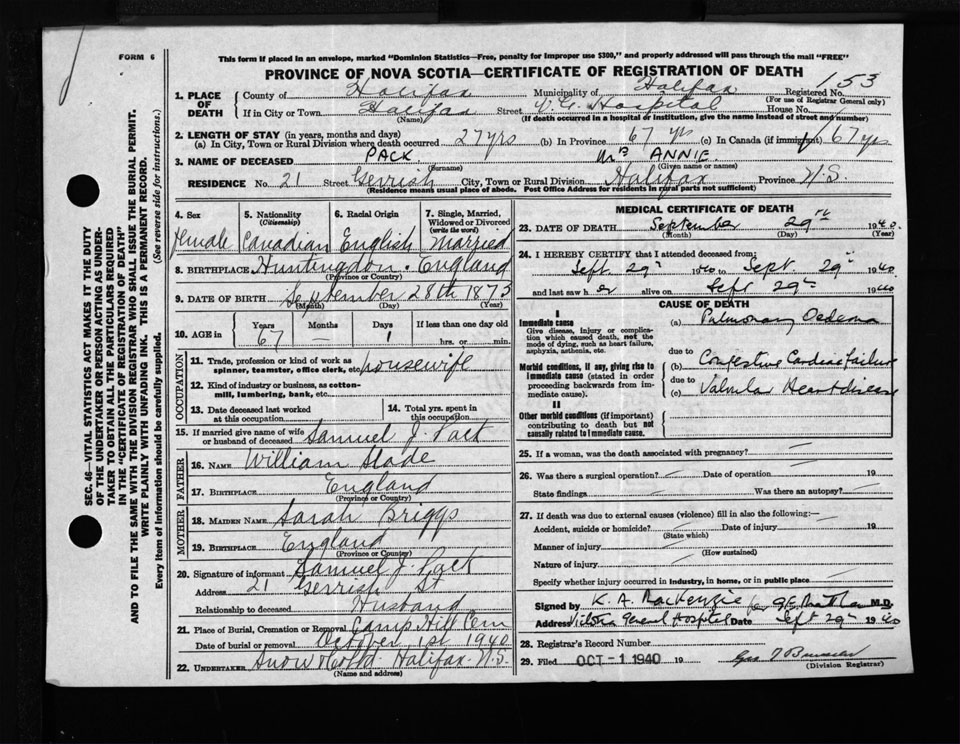 FORM 6
This form if placed in an envelope, marked "Dominion Statistics—Free, penalty for improper use $300," and properly addressed will pass through the mail "FREE"
PROVINCE OF NOVA SCOTIA—CERTIFICATE OF REGISTRATION OF DEATH
153
1. PLACE OF DEATH
County of Halifax Municipality of Halifax Registered No.
(For use of Registrar General only)
If in City or Town Halifax Street V.G. Hospital House No.
(Name) (If death occurred in a hospital or institution, give the name instead of street and number)
2. LENGTH OF STAY (in years, months and days)
(a) In City, Town or Rural Division where death occurred 27 yrs (b) In Province 67 yrs (c) In Canada (if immigrant) 67 yrs
3. NAME OF DECEASED PACK Mrs ANNIE.
(Surname) (Given name or names)
RESIDENCE No. 21 Street Gerrish City, Town or Rural Division Halifax Province N.S.
(Residence means usual place of abode. Post Office Address for residents in rural parts not sufficient)
4. Sex 5. Nationality (Citizenship) 6. Racial Origin 7. Single, Married, Widowed or Divorced (write the word)
Female Canadian English Married
8. BIRTHPLACE Huntingdon. England
(Province or Country)
9. DATE OF BIRTH September 28th 1873
(Month) (Day) (Year)
10. AGE in Years Months Days If less than one day old
67 — 1 hrs. or min.
OCCUPATION
11. Trade, profession or kind of work as spinner, teamster, office clerk, etc. housewife
12. Kind of industry or business, as cotton-mill, lumbering, bank, etc.
13. Date deceased last worked at this occupation
14. Total yrs. spent in this occupation
15. If married give name of wife or husband of deceased Samuel J. Pack
FATHER
16. NAME William Slade
17. BIRTHPLACE England
(Province or Country)
MOTHER
18. MAIDEN NAME Sarah Briggs
19. BIRTHPLACE England
(Province or Country)
20. Signature of informant Samuel J. Pack
Address 21 Gerrish St
Relationship to deceased Husband
21. Place of Burial, Cremation or Removal Camp Hill Cem
Date of burial or removal October 1st 1940
22. UNDERTAKER Snow & Co Ltd. Halifax. N.S.
(Name and address)
MEDICAL CERTIFICATE OF DEATH
23. DATE OF DEATH September 29th 1940.
(Month) (Day) (Year)
24. I HEREBY CERTIFY that I attended deceased from:
Sept. 29th 1940 to Sept. 29th 1940
and last saw her alive on Sept 29th 1940
CAUSE OF DEATH
I
Immediate cause
Give disease, injury or complication which caused death, not the mode of dying, such as heart failure, asphyxia, asthenia, etc.
(a) Pulmonary Oedema
due to
Morbid conditions, if any, giving rise to immediate cause (stated in order proceeding backwards from immediate cause).
(b) Congestive Cardiac failure
due to
(c) Valvular Heart disease
II
Other morbid conditions (if important) contributing to death but not causally related to immediate cause.
25. If a woman, was the death associated with pregnancy?
26. Was there a surgical operation? Date of operation 19
State findings Was there an autopsy?
27. If death was due to external causes (violence) fill in also the following:—
Accident, suicide or homicide? Date of injury 19
(State which)
Manner of injury
(How sustained)
Nature of injury
Specify whether injury occurred in industry, in home, or in public place
Signed by K. A. MacKenzie M.D.
Address Victoria General Hospital Date Sept 29th 1940
28. Registrar's Record Number
29. Filed OCT - 1 1940 19
(Division Registrar)
SEC. 46—VITAL STATISTICS ACT MAKES IT THE DUTY
OF THE UNDERTAKER OR PERSON ACTING AS UNDER-
TAKER TO OBTAIN ALL THE PARTICULARS REQUIRED
IN THE "CERTIFICATE OF REGISTRATION OF DEATH"
AND TO FILE THE SAME WITH THE DIVISION REGISTRAR WHO SHALL ISSUE THE BURIAL PERMIT.
WRITE PLAINLY WITH UNFADING INK. THIS IS A PERMANENT RECORD.
Every item of information should be carefully supplied. (See reverse side for instructions.)